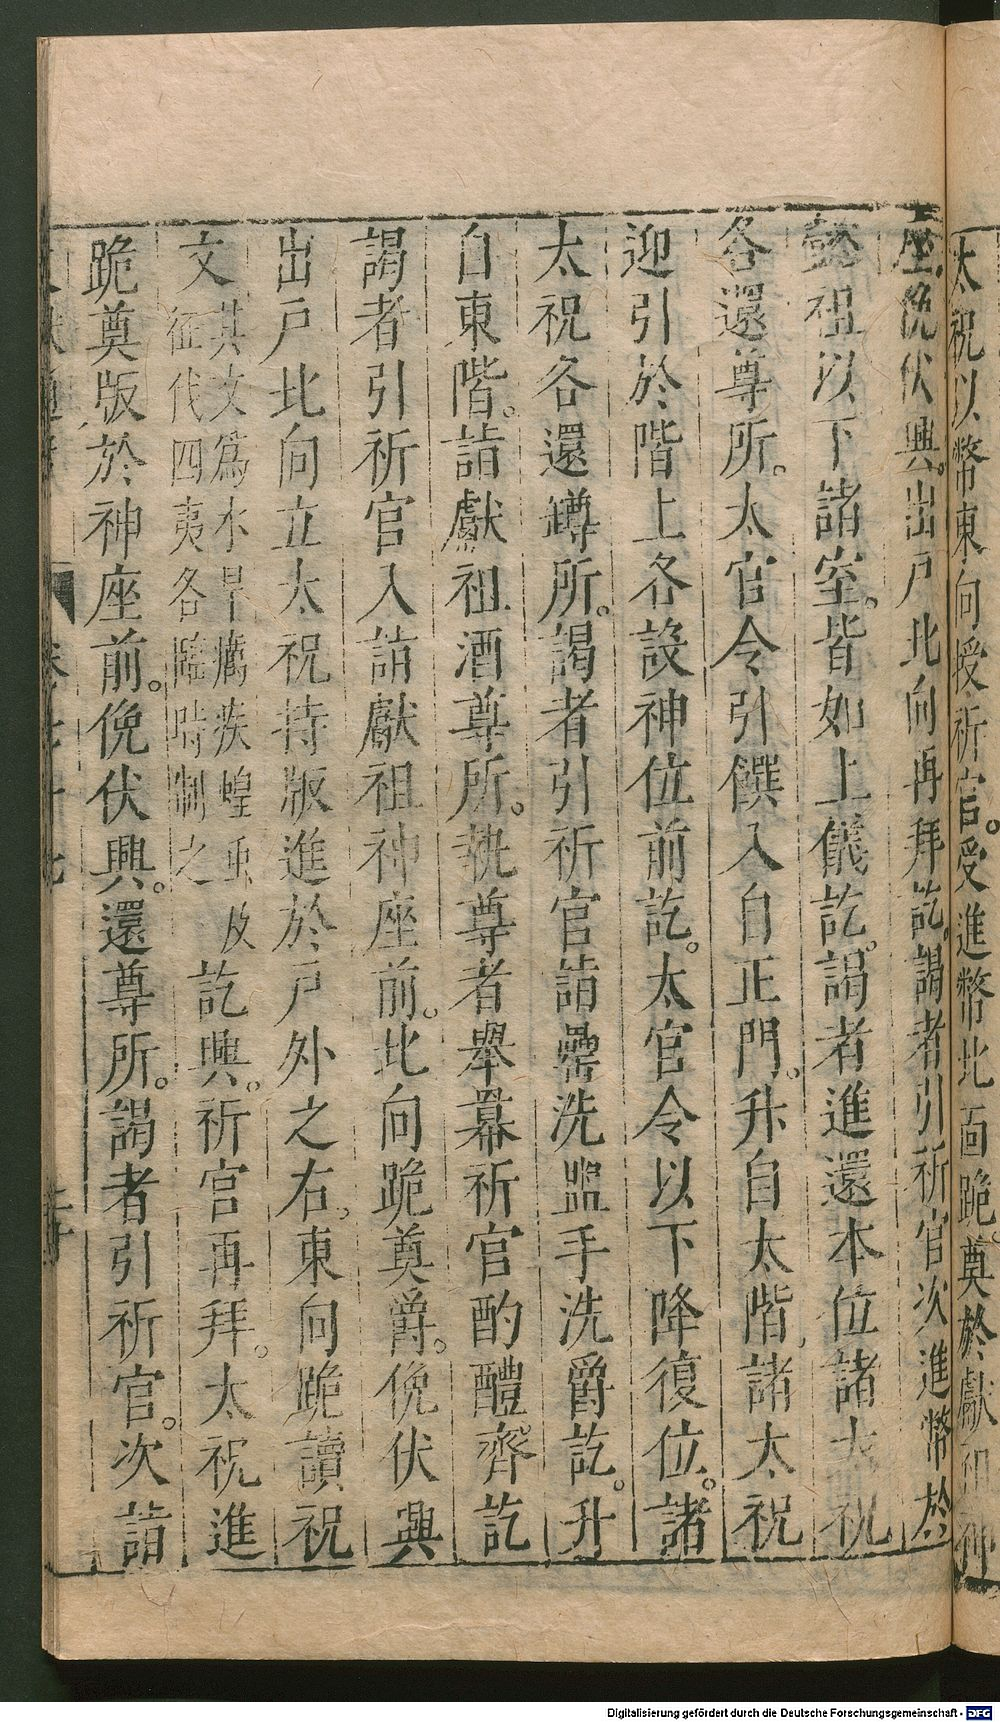 太祝以幣東向授祈官。受進幣北面跪。奠於獻祖神
座俛伏興。出戶北向再拜訖。謁者引祈官次進幣於
懿祖以下諸室。皆如上儀訖。謁者進還本位諸太祝
各還尊所。太官令引饌入自正門。升自太階諸太祝
迎引於階上各設神位前訖。太官令以下降復位。諸
太祝各還罇所。謁者引祈官詣罍洗盥手洗爵訖。升
自東階。詣獻祖酒尊所。執尊者舉冪祈官酌醴齊訖
謁者引祈官入詣獻祖神座前。北向跪奠爵。俛伏興
出戶北向立太祝持版進於戶外之右。東向跪讀祝
文其文為水旱癘疾蝗虫及征代四夷各臨時制之訖興。祈官再拜。太祝進
跪奠版於神座前。俛伏興。還尊所。謁者引祈官。次詣
Digitalisierung gefördert durch die Deutsche Forschungsgemeinschaft - DFG